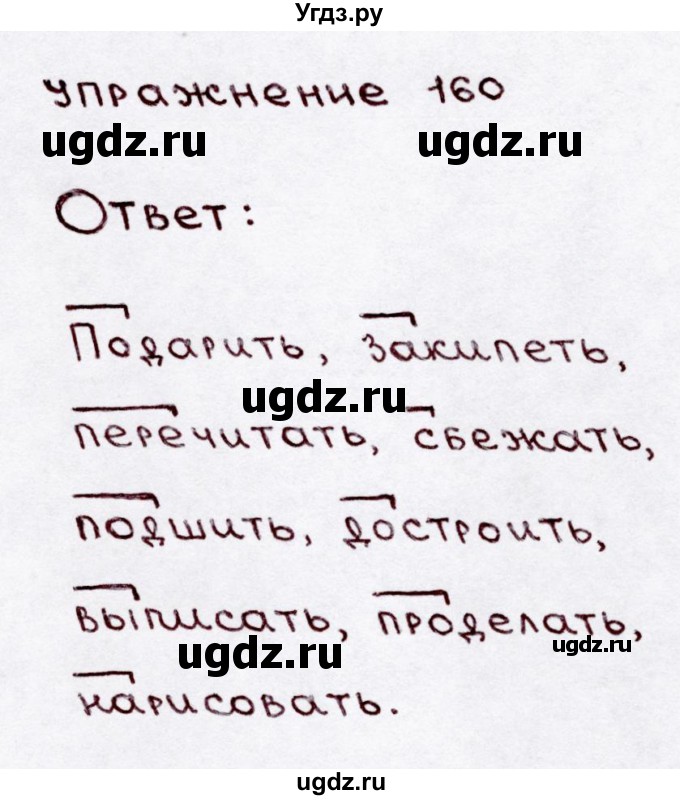 Угдз.ру
упражнение 160
ugdz.ru ugdz.ru
Ответ:
Подарить, закипеть,
ugdz.ru
перечитать, сбежать,
подшить, достроить,
выписать, проделать,
ugdz.ru ugdz.ru
нарисовать.
ugdz.ru